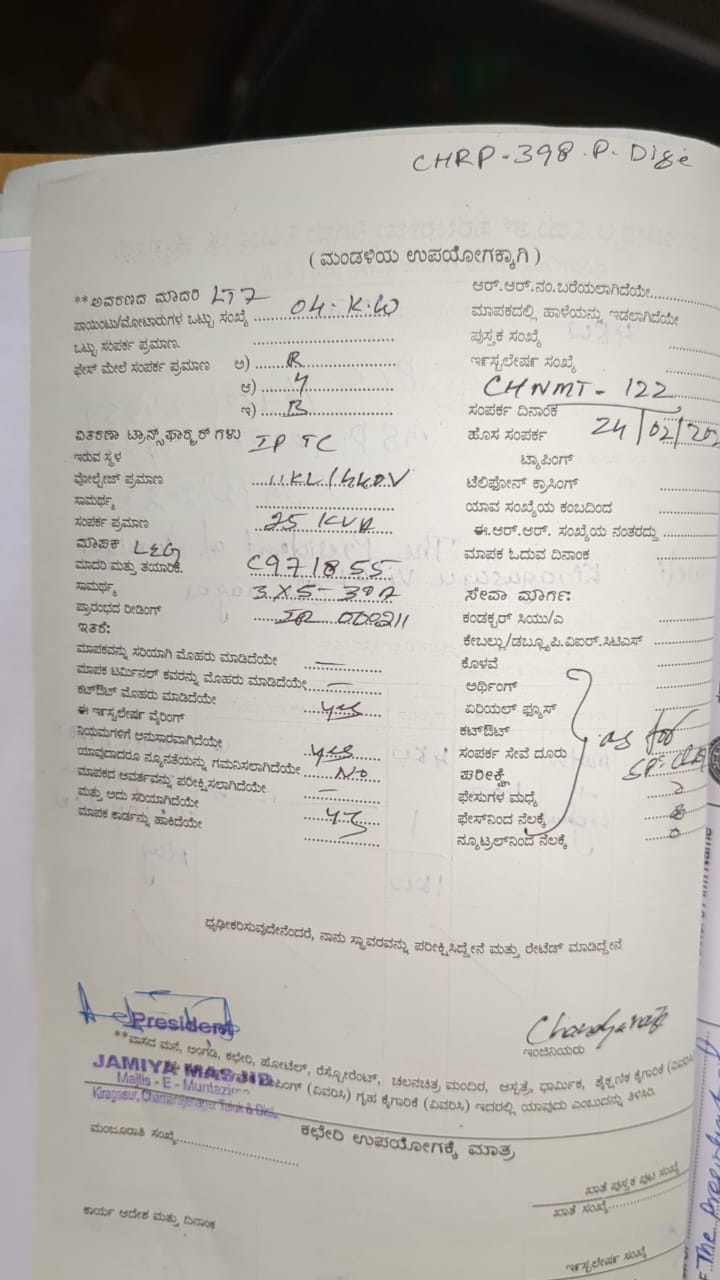 CHRP-398 P. Dige
(ಮಂಡಳಿಯ ಉಪಯೋಗಕ್ಕಾಗಿ)
**ಆವರಣದ ಮಾದರಿ LT7
ಪಾಯಿಂಟು/ಮೋಟಾರುಗಳ ಒಟ್ಟು ಸಂಖ್ಯೆ 04. K.W
ಒಟ್ಟು ಸಂಪರ್ಕ ಪ್ರಮಾಣ.
ಫೇಸ್ ಮೇಲೆ ಸಂಪರ್ಕ ಪ್ರಮಾಣ ಅ) R
ಆ) Y
ಇ) B
ವಿತರಣಾ ಟ್ರಾನ್ಸ್‌ಫಾರ್ಮರ್‌ಗಳು IP TC
ಇರುವ ಸ್ಥಳ
ವೋಲ್ಟೇಜ್ ಪ್ರಮಾಣ
ಸಾಮರ್ಥ್ಯ
ಸಂಪರ್ಕ ಪ್ರಮಾಣ 25 KVA
ಮಾಪಕ L&G
ಮಾದರಿ ಮತ್ತು ತಯಾರಿಕೆ. C971855
ಸಾಮರ್ಥ್ಯ 3X5-30A
ಪ್ರಾರಂಭದ ರೀಡಿಂಗ್ IR 000211
ಇತರೆ:
ಮಾಪಕವನ್ನು ಸರಿಯಾಗಿ ಮೊಹರು ಮಾಡಿದೆಯೇ
ಮಾಪಕ ಟರ್ಮಿನಲ್ ಕವರನ್ನು ಮೊಹರು ಮಾಡಿದೆಯೇ
ಕಟ್‌ಔಟ್ ಮೊಹರು ಮಾಡಿದೆಯೇ yes
ಈ ಇನ್ಸ್ಟಲೇಷನ್ ವೈರಿಂಗ್
ನಿಯಮಗಳಿಗೆ ಅನುಸಾರವಾಗಿದೆಯೇ yes
ಯಾವುದಾದರೂ ನ್ಯೂನತೆಯನ್ನು ಗಮನಿಸಲಾಗಿದೆಯೇ No
ಮಾಪಕದ ಆವರ್ತವನ್ನು ಪರೀಕ್ಷಿಸಲಾಗಿದೆಯೇ
ಮತ್ತು ಅದು ಸರಿಯಾಗಿದೆಯೇ
ಮಾಪಕ ಕಾರ್ಡನ್ನು ಹಾಕಿದೆಯೇ
ಆರ್.ಆರ್.ನಂ.ಬರೆಯಲಾಗಿದೆಯೇ
ಮಾಪಕದಲ್ಲಿ ಹಾಳೆಯನ್ನು ಇಡಲಾಗಿದೆಯೇ
ಪುಸ್ತಕ ಸಂಖ್ಯೆ
ಇನ್ಸ್ಟಲೇಷನ್ ಸಂಖ್ಯೆ
CHNMT-122
ಸಂಪರ್ಕ ದಿನಾಂಕ
ಹೊಸ ಸಂಪರ್ಕ 24/02/202
ಟ್ಯಾಪಿಂಗ್
ಟೆಲಿಫೋನ್ ಕ್ರಾಸಿಂಗ್
ಯಾವ ಸಂಖ್ಯೆಯ ಕಂಬದಿಂದ
ಈ.ಆರ್.ಆರ್. ಸಂಖ್ಯೆಯ ನಂತರದ್ದು
ಮಾಪಕ ಓದುವ ದಿನಾಂಕ
ಸೇವಾ ಮಾರ್ಗ:
ಕಂಡಕ್ಟರ್ ಸಿಯು/ಎ
ಕೇಬಲ್ಲು/ಡಬ್ಲ್ಯೂಪಿ.ವಿಐಆರ್.ಸಿಟಿಎಸ್
ಕೊಳವೆ
ಅರ್ಥಿಂಗ್
ಏರಿಯಲ್ ಫ್ಯೂಸ್
ಕಟ್‌ಔಟ್ as for
ಸಂಪರ್ಕ ಸೇವೆ ದೂರು
ಪರೀಕ್ಷೆ
ಫೇಸುಗಳ ಮಧ್ಯೆ
ಫೇಸ್‌ನಿಂದ ನೆಲಕ್ಕೆ
ನ್ಯೂಟ್ರಲ್‌ನಿಂದ ನೆಲಕ್ಕೆ
ಧೃಢೀಕರಿಸುವುದೇನೆಂದರೆ, ನಾನು ಸ್ಥಾವರವನ್ನು ಪರೀಕ್ಷಿಸಿದ್ದೇನೆ ಮತ್ತು ರೇಟೆಡ್ ಮಾಡಿದ್ದೇನೆ
President
ಇಂಜಿನಿಯರು
**ವಾಸದ ಮನೆ, ಅಂಗಡಿ, ಕಛೇರಿ, ಹೋಟೆಲ್, ರೆಸ್ಟೋರೆಂಟ್, ಚಲನಚಿತ್ರ ಮಂದಿರ, ಆಸ್ಪತ್ರೆ, ಧಾರ್ಮಿಕ, ಶೈಕ್ಷಣಿಕ ಕೈಗಾರಿಕೆ (ವಿವರಿಸಿ)
JAMIYA MASJID
(ವಿವರಿಸಿ) ಗೃಹ ಕೈಗಾರಿಕೆ (ವಿವರಿಸಿ) ಇದರಲ್ಲಿ ಯಾವುದು ಎಂಬುದನ್ನು ತಿಳಿಸಿ.
Majlis - E - Muntazima
Kiragasur, Chamarajanagar Taluk & Dist.
ಕಛೇರಿ ಉಪಯೋಗಕ್ಕೆ ಮಾತ್ರ
ಮಂಜೂರಾತಿ ಸಂಖ್ಯೆ
ಖಾತೆ ಪುಸ್ತಕ ಪುಟ ಸಂಖ್ಯೆ
ಖಾತೆ ಸಂಖ್ಯೆ
ಕಾರ್ಯ ಆದೇಶ ಮತ್ತು ದಿನಾಂಕ
ಇನ್ಸ್ಟಲೇಷನ್ ಸಂಖ್ಯೆ